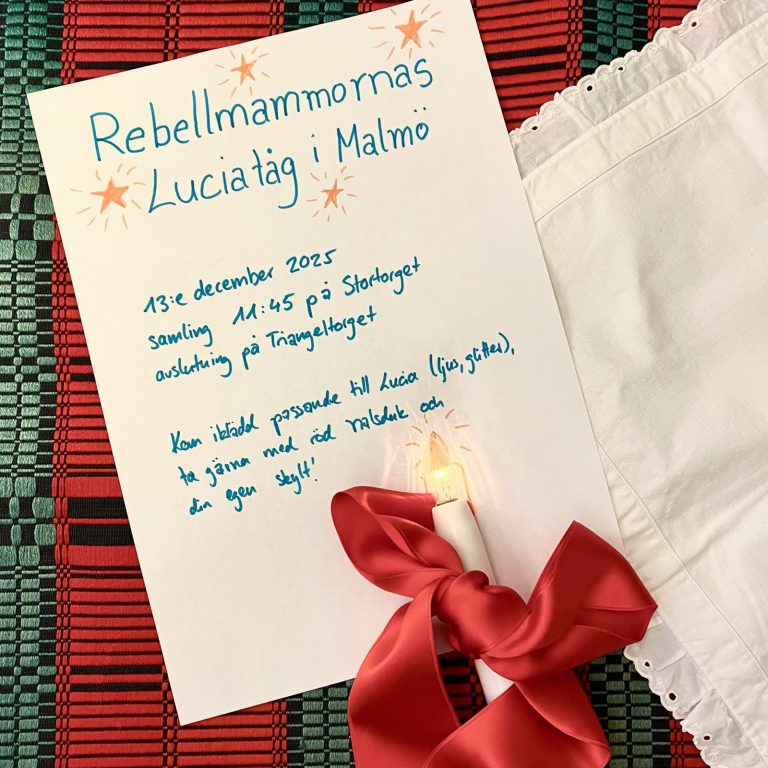 Rebellmammornas
Luciatåg i Malmö
13:e december 2025
samling 11:45 på Stortorget
avslutning på Triangeltorget
Kom iklädd passande till Lucia (ljus, glitter),
ta gärna med röd halsduk och
din egen skylt!